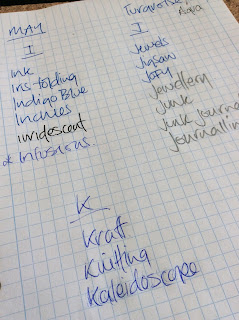 MAY
I
Ink
Iris folding
Indigo Blue
Inchies
iridescent
* Infusions
Turquoise
Aqua
J
Jewels
Jigsaw
Joy
Jewellery
Junk
Junk Journal
Journallin
K
Kraft
Knitting
Kaleidoscope